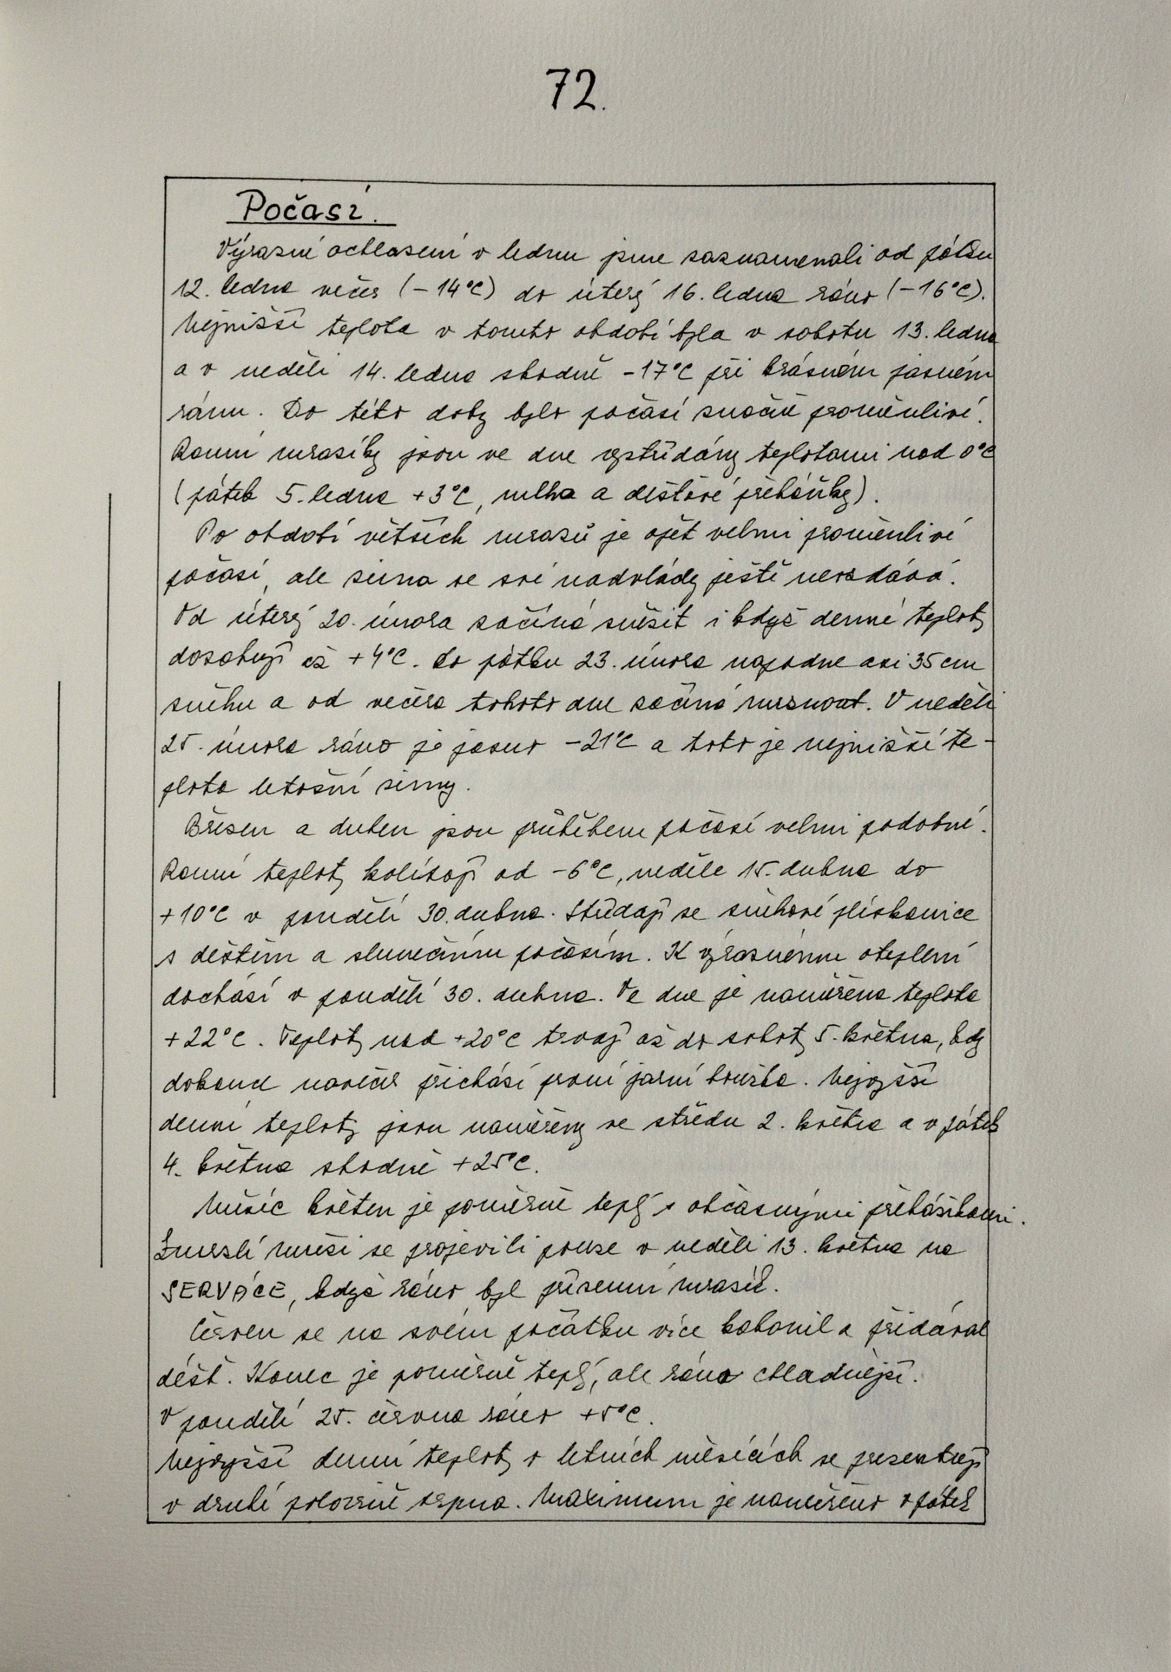 72.
Počasí.
Výrazné ochlazení v lednu jsme zaznamenali od pátku
12. ledna večer (-14°C) do úterý 16. ledna ráno (-16°C).
Nejnižší teplota v tomto období byla v sobotu 13. ledna
a v neděli 14. ledna shodně -17°C při krásném jasném
ránu. Do této doby bylo počasí značně proměnlivé.
Ranní mrazíky jsou ve dne vystřídány teplotami nad 0°C
(pátek 5. ledna +3°C, mlha a dešťové přeháňky).
Po období větších mrazů je opět velmi proměnlivé
počasí, ale zima se své nadvlády ještě nevzdává.
Od úterý 20. února začíná sněžit i když denní teploty
dosahují až +4°C. Do pátku 23. února napadne asi 35 cm
sněhu a od večera tohoto dne začíná mrznout. V neděli
25. února ráno je jasno -21°C a toto je nejnižší te-
plota letošní zimy.
Březen a duben jsou průběhem počasí velmi podobné.
Ranní teploty kolísají od -6°C, neděle 15. dubna do
+10°C v pondělí 30. dubna. Střídají se sněhové plískanice
s deštěm a slunečním počasím. K výraznému oteplení
dochází v pondělí 30. dubna. Ve dne je naměřena teplota
+22°C. Teploty nad +20°C trvají až do soboty 5. května, kdy
dokonce navečer přichází první jarní bouřka. Nejvyšší
denní teploty jsou naměřeny ve středu 2. května a v pátek
4. května shodně +25°C.
Měsíc květen je poměrně teplý s občasnými přeháňkami.
Zmrzlí muži se projevili pouze v neděli 13. května na
SERVÁCE, když ráno byl přízemní mrazík.
Červen se na svém počátku více kabonil a přidával
déšť. Konec je poměrně teplý, ale ráno chladnější.
V pondělí 25. června ráno +5°C.
Nejvyšší denní teploty v letních měsících se prezentují
v druhé polovině srpna. Maximum je naměřeno v pátek